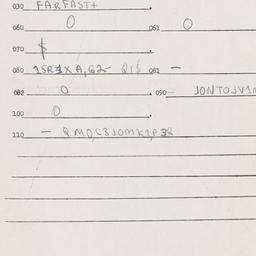 030 FARFAST+
060 0 061 0
070 $
080 15R4XA,62- Q1$ 081 -
082 0 090 JONTOJV1
100 0
110 - QMD,C3JOMK1,P32